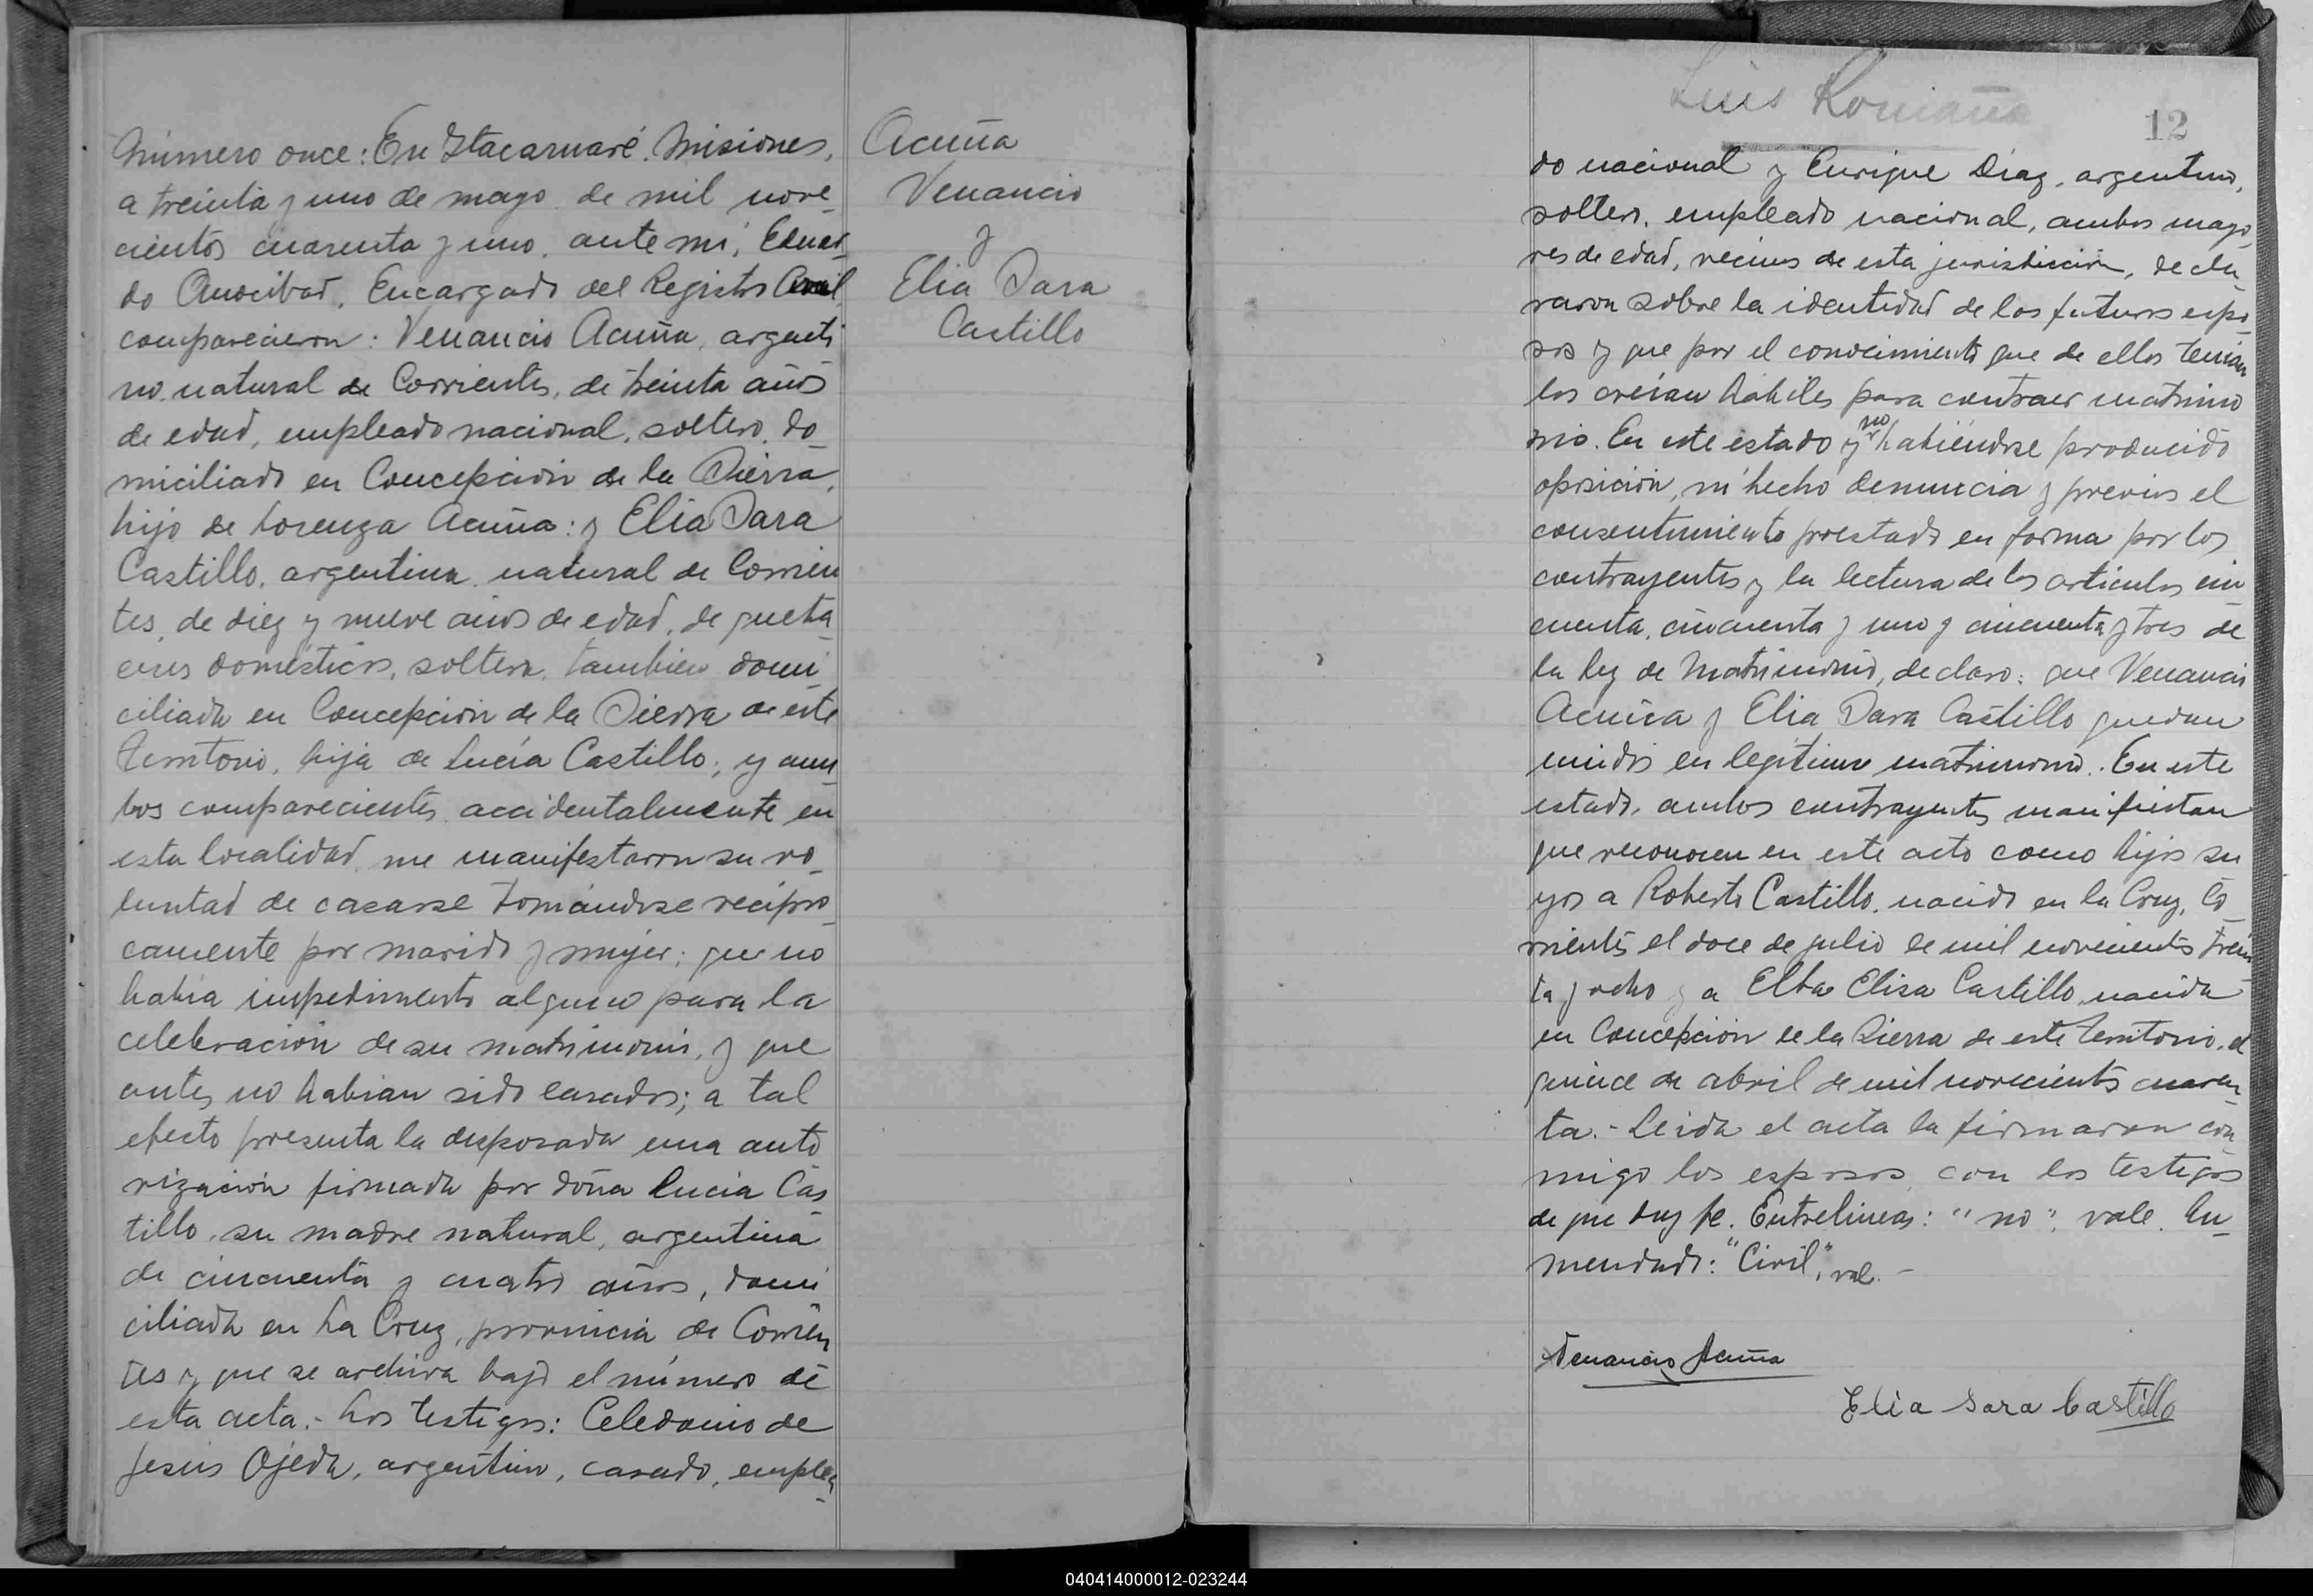 Número once: En Itacaruaré. Misiones,
a treinta y uno de mayo de mil nove_
cientos cuarenta y uno, ante mi, Eduar_
do, Encargado del Registro Civil
comparecieron: Venancio Acuña, argenti
no, natural de Corrientes, de treinta años
de edad, empleado nacional, soltero, do_
miciliado en Concepción de la Sierra,
hijo de Lorenza Acuña: y Elia Sara
Castillo, argentina, natural de Corrien
tes, de diez y nueve años de edad, de queha_
ceres domésticos, soltera, tambien domi_
ciliada en Concepción de la Sierra de este
territorio, hija de Lucía Castillo; y am
bos comparecientes accidentalmente en
esta localidad, me manifestaron su vo_
luntad de casarse tomándose recipro_
camente por marido y mujer; que no
habia impedimento alguno para la
celebración de su matrimonio, y que
antes no habian sido casados; a tal
efecto presenta la desposada una auto_
rización firmada por doña Lucia Cas_
tillo, su madre natural, argentina
de cincuenta y cuatro años, domi_
ciliada en La Cruz, provincia de Corrien
tes y que se archiva bajo el número de
esta acta.- Los testigos: Celedonio de
Jesús Ojeda, argentino, casado, emplea_
Acuña
Venancio
y
Elia Sara
Castillo
Luis Romaña
12
do nacional y Enrique Diaz, argentino,
soltero, empleado nacional, ambos mayo_
res de edad, vecinos de esta jurisdicción, decla_
raron sobre la identidad de los futuros espo_
sos y que por el conocimiento que de ellos tenian
los creian hábiles para contraer matrimo
nio. En este estado y no habiéndose producido
oposición, ni hecho denuncia y previos el
consentimiento prestado en forma por los
contrayentes y la lectura de los articulos cin
cuenta, cincuenta y uno y cincuenta y tres de
la ley de Matrimonio, declaro: que Venancio
Acuña y Elia Sara Castillo quedan
unidos en legítimo matrimonio. En este
estado, ambos contrayentes manifiestan
que reconocen en este acto como hijos su
yos a Roberto Castillo, nacido en la Cruz, Co_
rrientes el doce de julio de mil novecientos trein
ta y ocho y a Elba Elisa Castillo, nacida
en Concepción de la Sierra de este territorio, el
quince de abril de mil novecientos cuaren_
ta.- Leida el acta la firmaron con
migo los esposos, con los testigos
de que doy fe. Entrelineas: "no", vale. En_
mendado: "Civil", vale.-
Venancio Acuña
Elia Sara Castillo
040414000012-023244